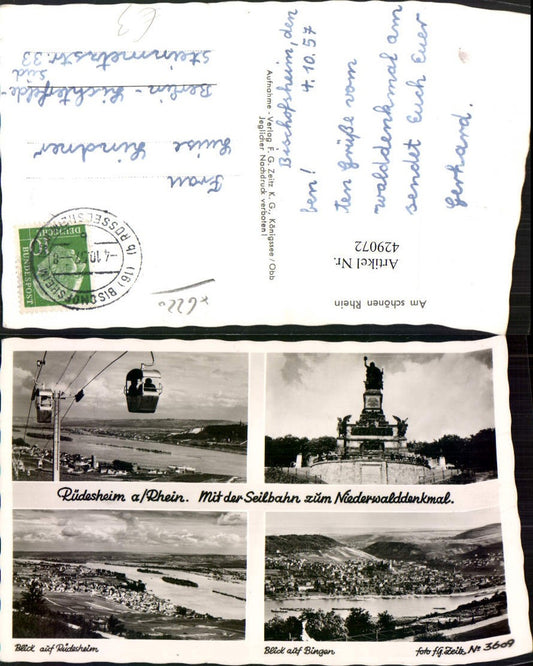 Bischofsheim, den
4.10.57
ben!
ten Grüße vom
walddenkmal am
sendet Euch Euer
Gerhard.
Frau
Luise Lindner
Berlin-Lichterfelde-
süd
Steinmetzstr. 33
Aufnahme-Verlag F. G. Zeitz K. G., Königssee/Obb
Jeglicher Nachdruck verboten!
Am schönen Rhein
Artikel Nr.
429072
DEUTSCHE
BUNDESPOST
10
(16) BISCHOFSHEIM
-4.10.57
Rüdesheim a/Rhein. Mit der Seilbahn zum Niederwalddenkmal.
Blick auf Rüdesheim
Blick auf Bingen
foto f.G. Zeitz, No 3609